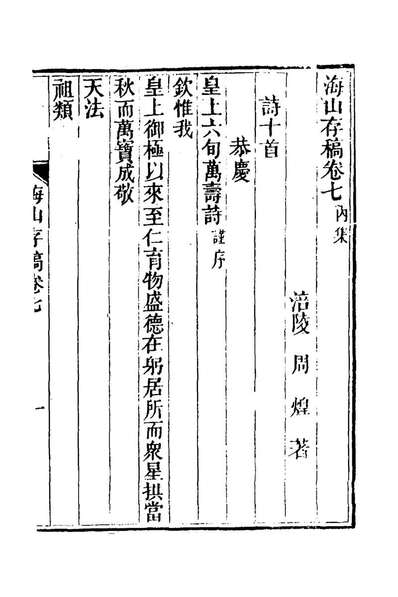 海山存稿卷七內集
涪陵周煌著
詩十首
恭慶
皇上六旬萬壽詩謹序
欽惟我
皇上御極以來至仁育物盛德在躬居所而衆星拱當
秋而萬寶成敬
天法
祖類
海山存稿卷七
一